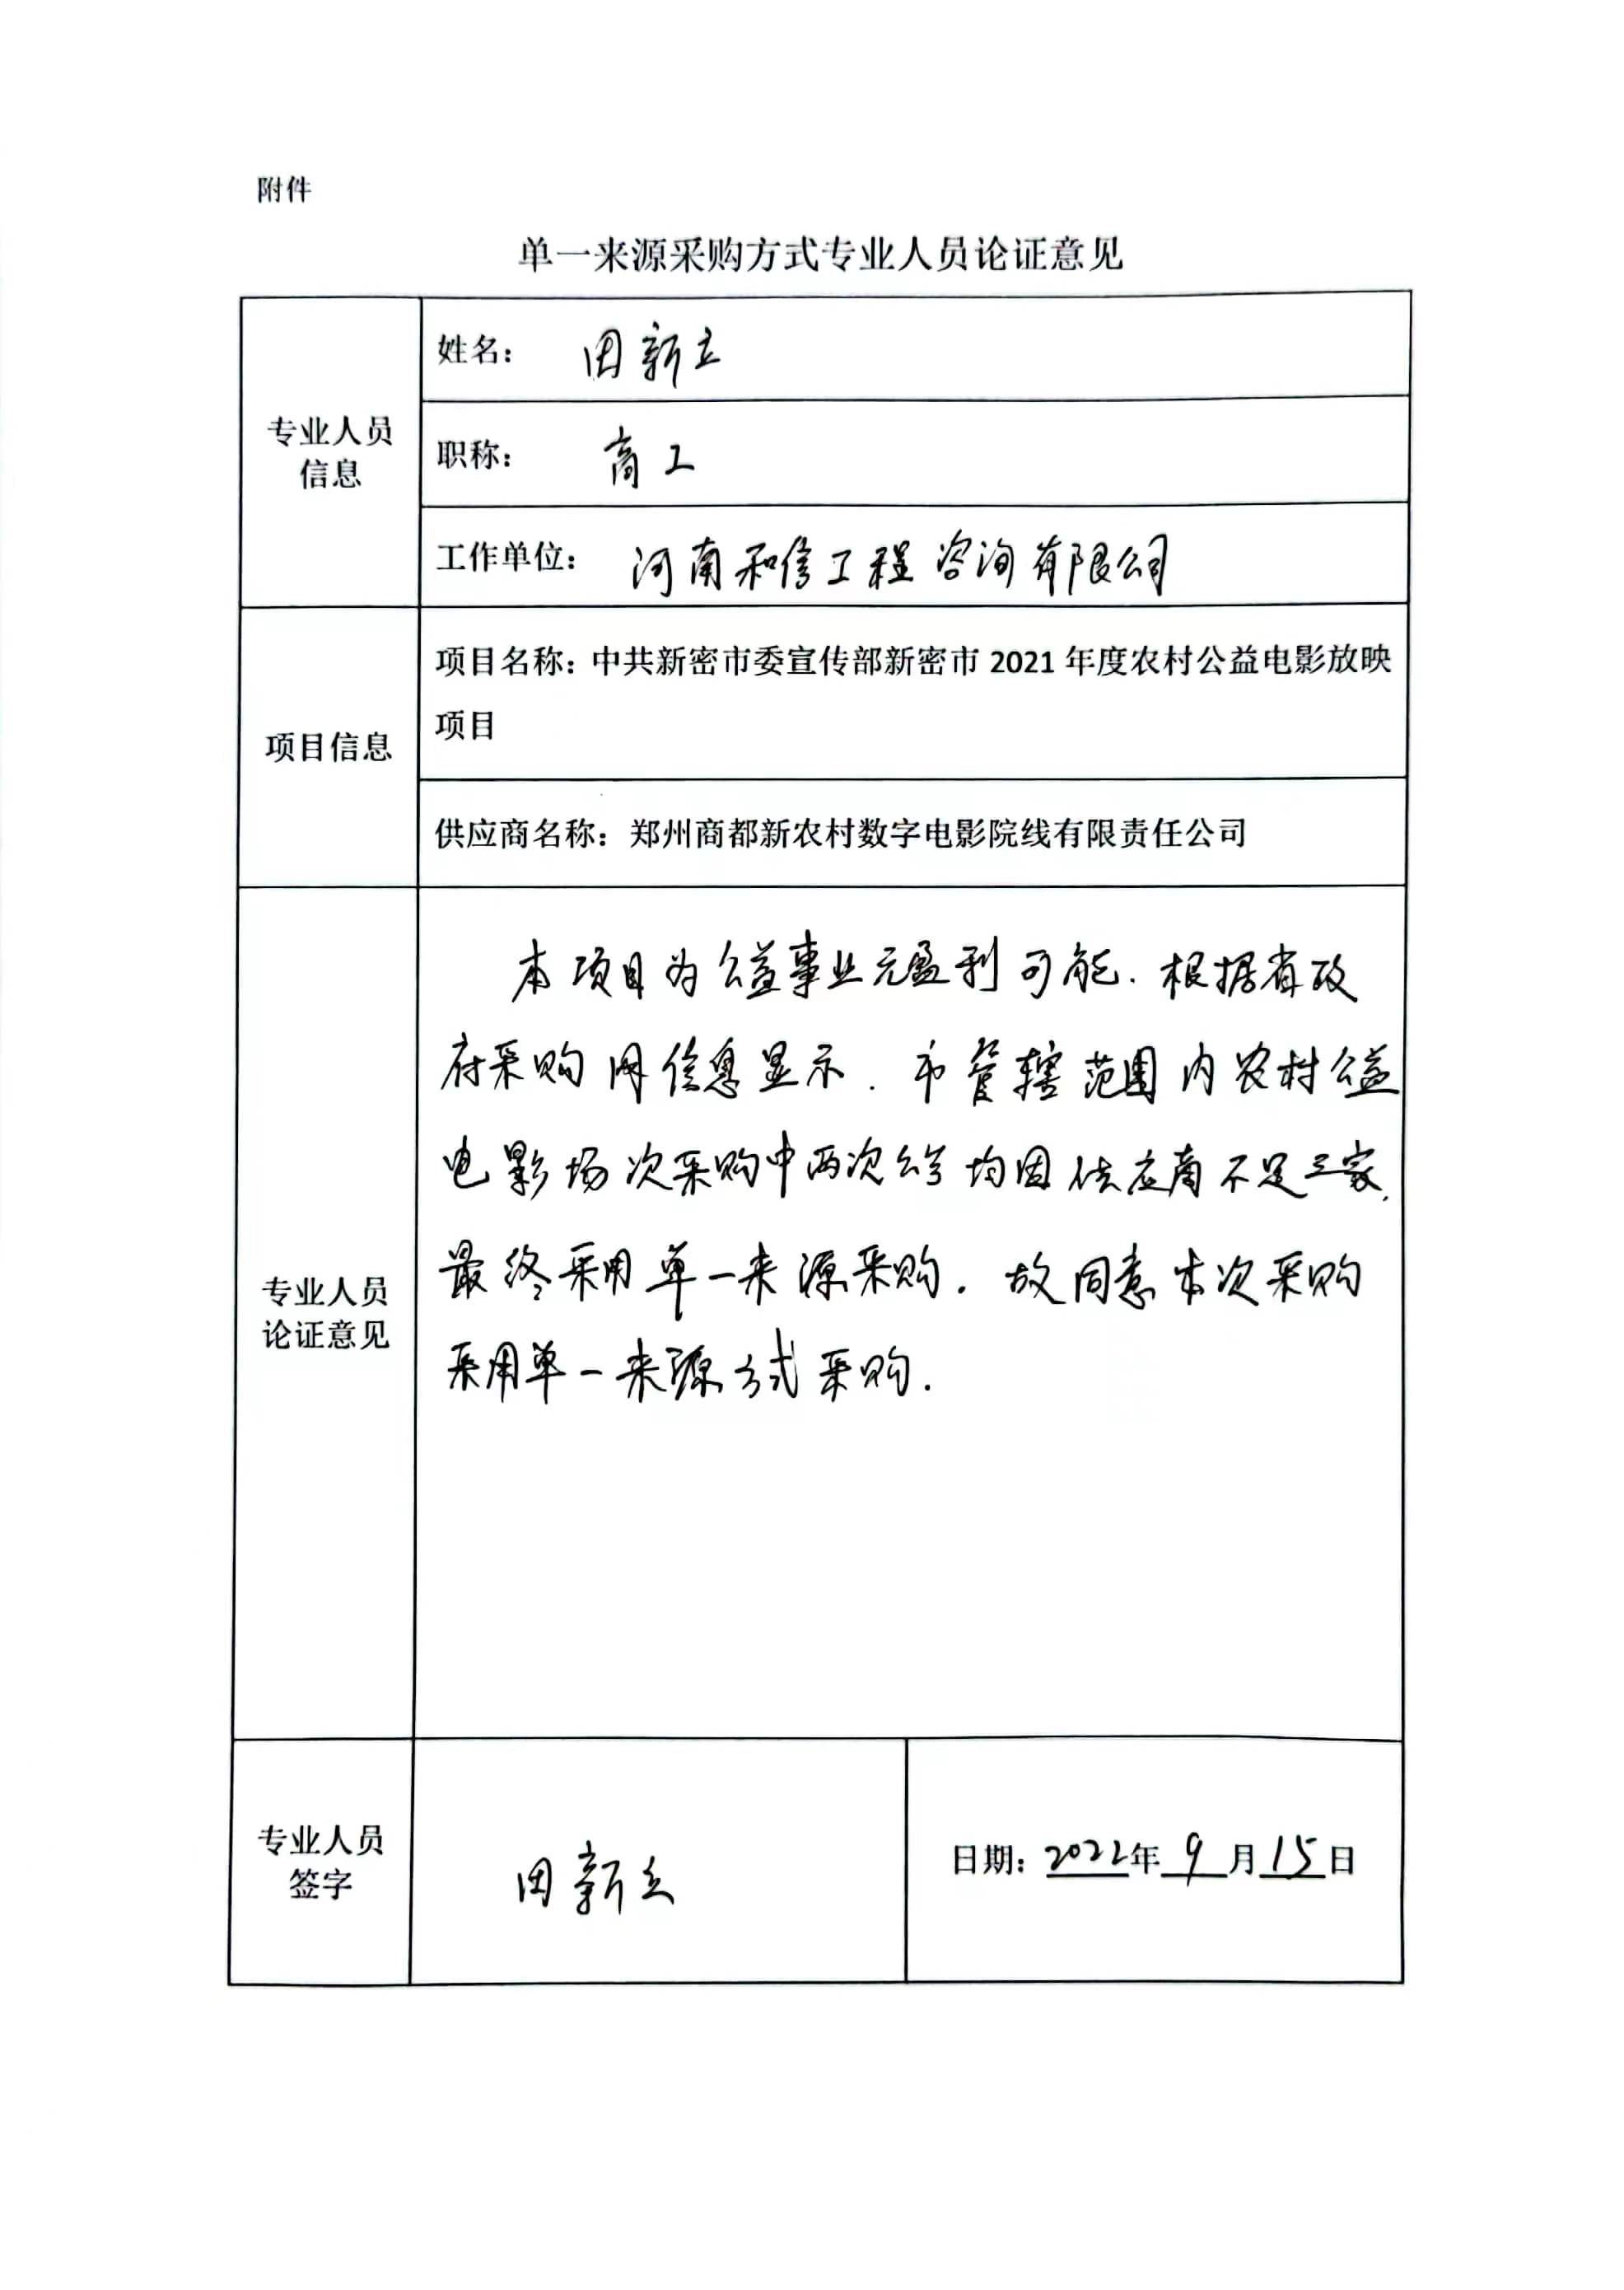 附件
单一来源采购方式专业人员论证意见
专业人员
信息
姓名： 田新立
职称： 高工
工作单位： 河南和信工程咨询有限公司
项目信息
项目名称：中共新密市委宣传部新密市 2021 年度农村公益电影放映
项目
供应商名称：郑州商都新农村数字电影院线有限责任公司
专业人员
论证意见
本项目为公益事业无盈利可能. 根据省政
府采购网信息显示. 市管辖范围内农村公益
电影场次采购中两次公告均因供应商不足三家,
最终采用单一来源采购. 故同意本次采购
采用单一来源方式采购.
专业人员
签字
田新立
日期: 2022年 9 月 15 日